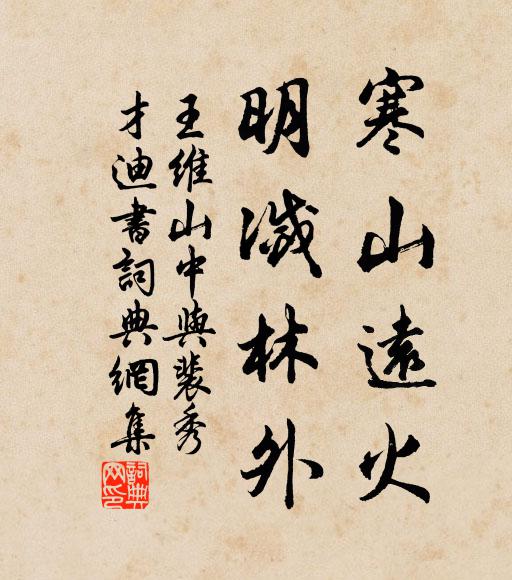 寒山遠火
明滅林外
王維山中與裴秀
才迪書詞典網集
詞典
网印